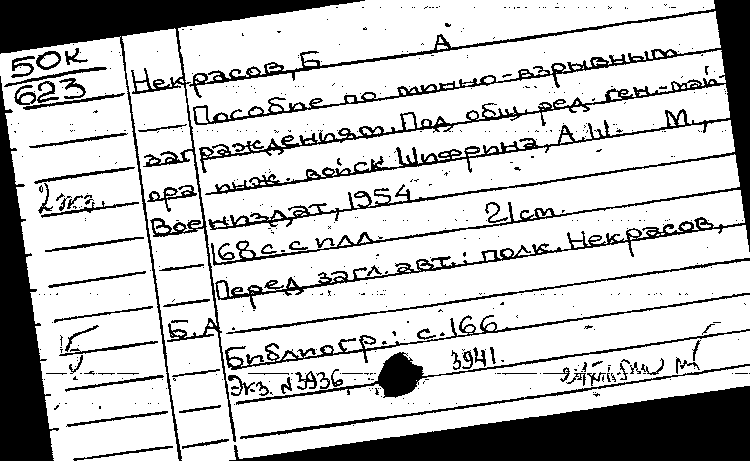 50к
623
Некрасов, Б А
Пособие по минно-взрывным
заграждениям. Под общ. ред. ген.-май-
ора инж. войск Шифрина, А.Ш. М.,
2 экз.
Воениздат, 1954.
168 с. с илл. 21 cm.
Перед загл. авт.: полк. Некрасов,
Б.А.
Библиогр.: с. 166.
Экз. №3936, 3941.